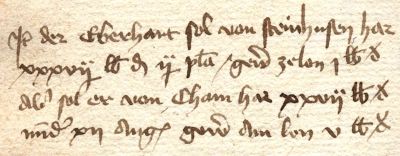 It der Eberhart sol von steinhusen har
xxxvij lb d ij pla gew zelon j lb d
Als sol er von Cham har xxvij lb d
und xij ang gew am len v lb d